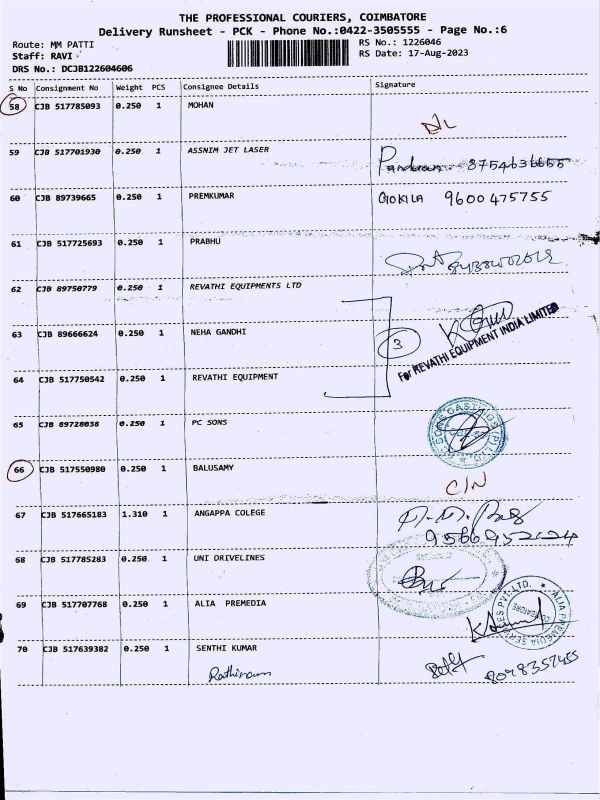 THE PROFESSIONAL COURIERS, COIMBATORE
Delivery Runsheet - PCK - Phone No.:0422-3505555 - Page No.:6
Route: MM PATTI
RS No.: 1226046
Staff: RAVI
RS Date: 17-Aug-2023
DRS No.: DCJB122604606
S No Consignment No Weight PCS Consignee Details Signature
58 CJB 517785093 0.250 1 MOHAN
D/L
59 CJB 517701930 0.250 1 ASSNIM JET LASER
8754636655
60 CJB 89739665 0.250 1 PREMKUMAR GOKILA 9600475755
61 CJB 517725693 0.250 1 PRABHU
62 CJB 89750779 0.250 1 REVATHI EQUIPMENTS LTD
63 CJB 89666624 0.250 1 NEHA GANDHI
3
For REVATHI EQUIPMENT INDIA LIMITED
64 CJB 517750542 0.250 1 REVATHI EQUIPMENT
65 CJB 89728038 0.250 1 PC SONS
66 CJB 517550980 0.250 1 BALUSAMY
C/N
67 CJB 517665183 1.310 1 ANGAPPA COLEGE
68 CJB 517785283 0.250 1 UNI DRIVELINES
69 CJB 517707768 0.250 1 ALIA PREMEDIA
ALIA PREMEDIA SERVICES PVT. LTD.
70 CJB 517639382 0.250 1 SENTHI KUMAR